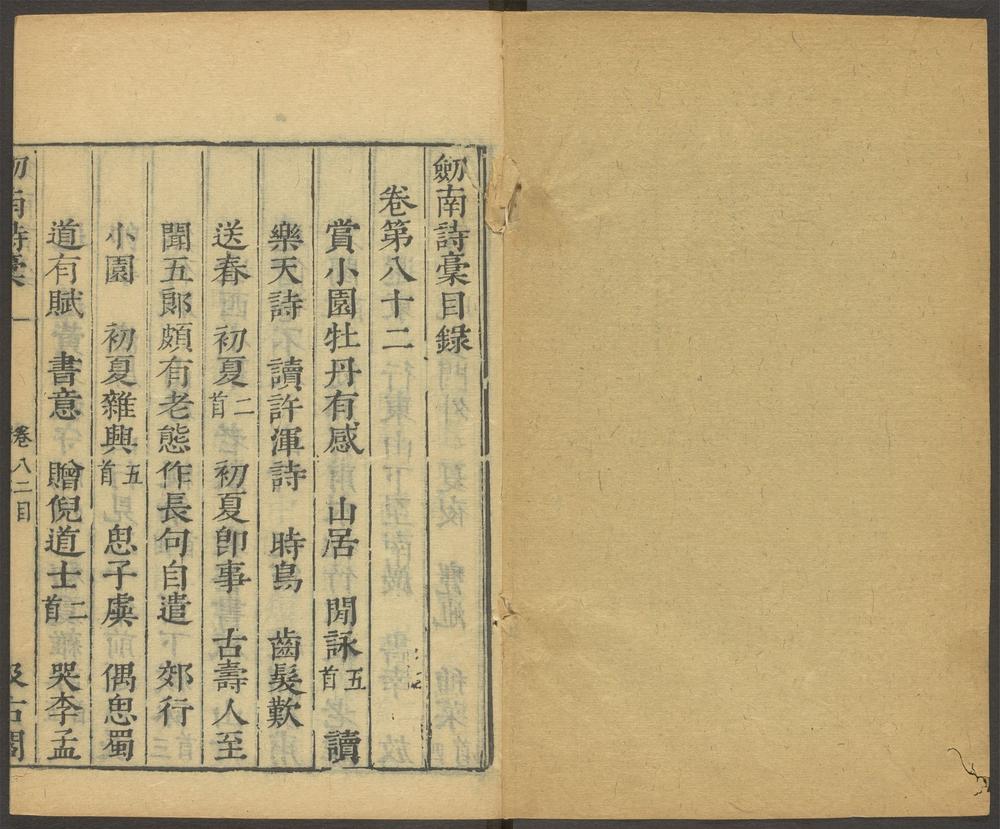 劒南詩稾目錄
卷第八十二
賞小園牡丹有感 山居 閒詠五首 讀
樂天詩 讀許渾詩 時鳥 齒髮歎
送春 初夏二首 初夏卽事 古壽人至
聞五郞頗有老態作長句自遣 郊行
小園 初夏雜興五首 思子虡 偶思蜀
道有賦 書意 贈倪道士二首 哭李孟
南詩稾 卷八二目 汲古閣